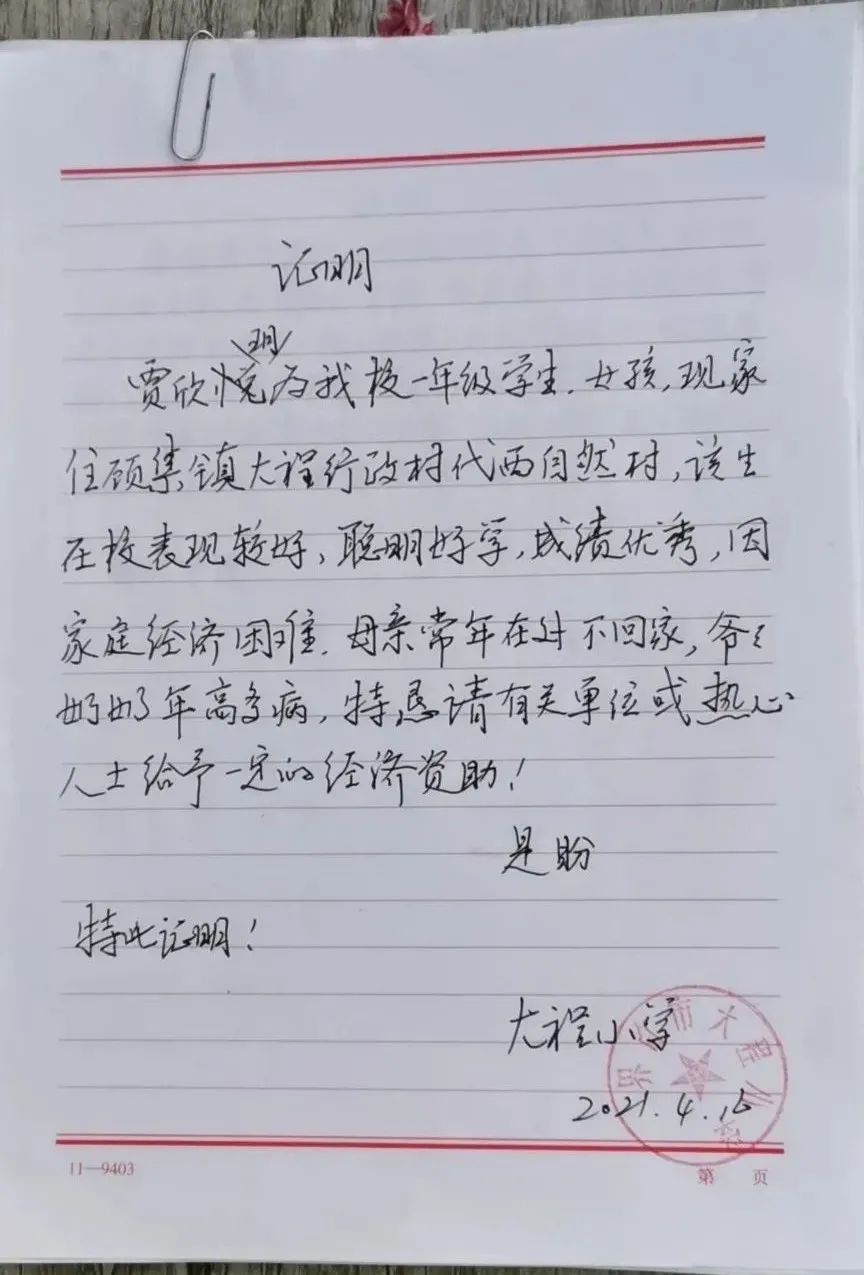 证明
玥
贾欣悦为我校一年级学生.女孩,现家
住顾集镇大程行政村代西自然村,该生
在校表现较好,聪明好学,成绩优秀,因
家庭经济困难.母亲常年在外不回家,爷々
奶奶年高多病,特恳请有关单位或热心
人士给予一定的经济资助!
是盼
特此证明!
大程小学
2021.4.16
11—9403
第 页